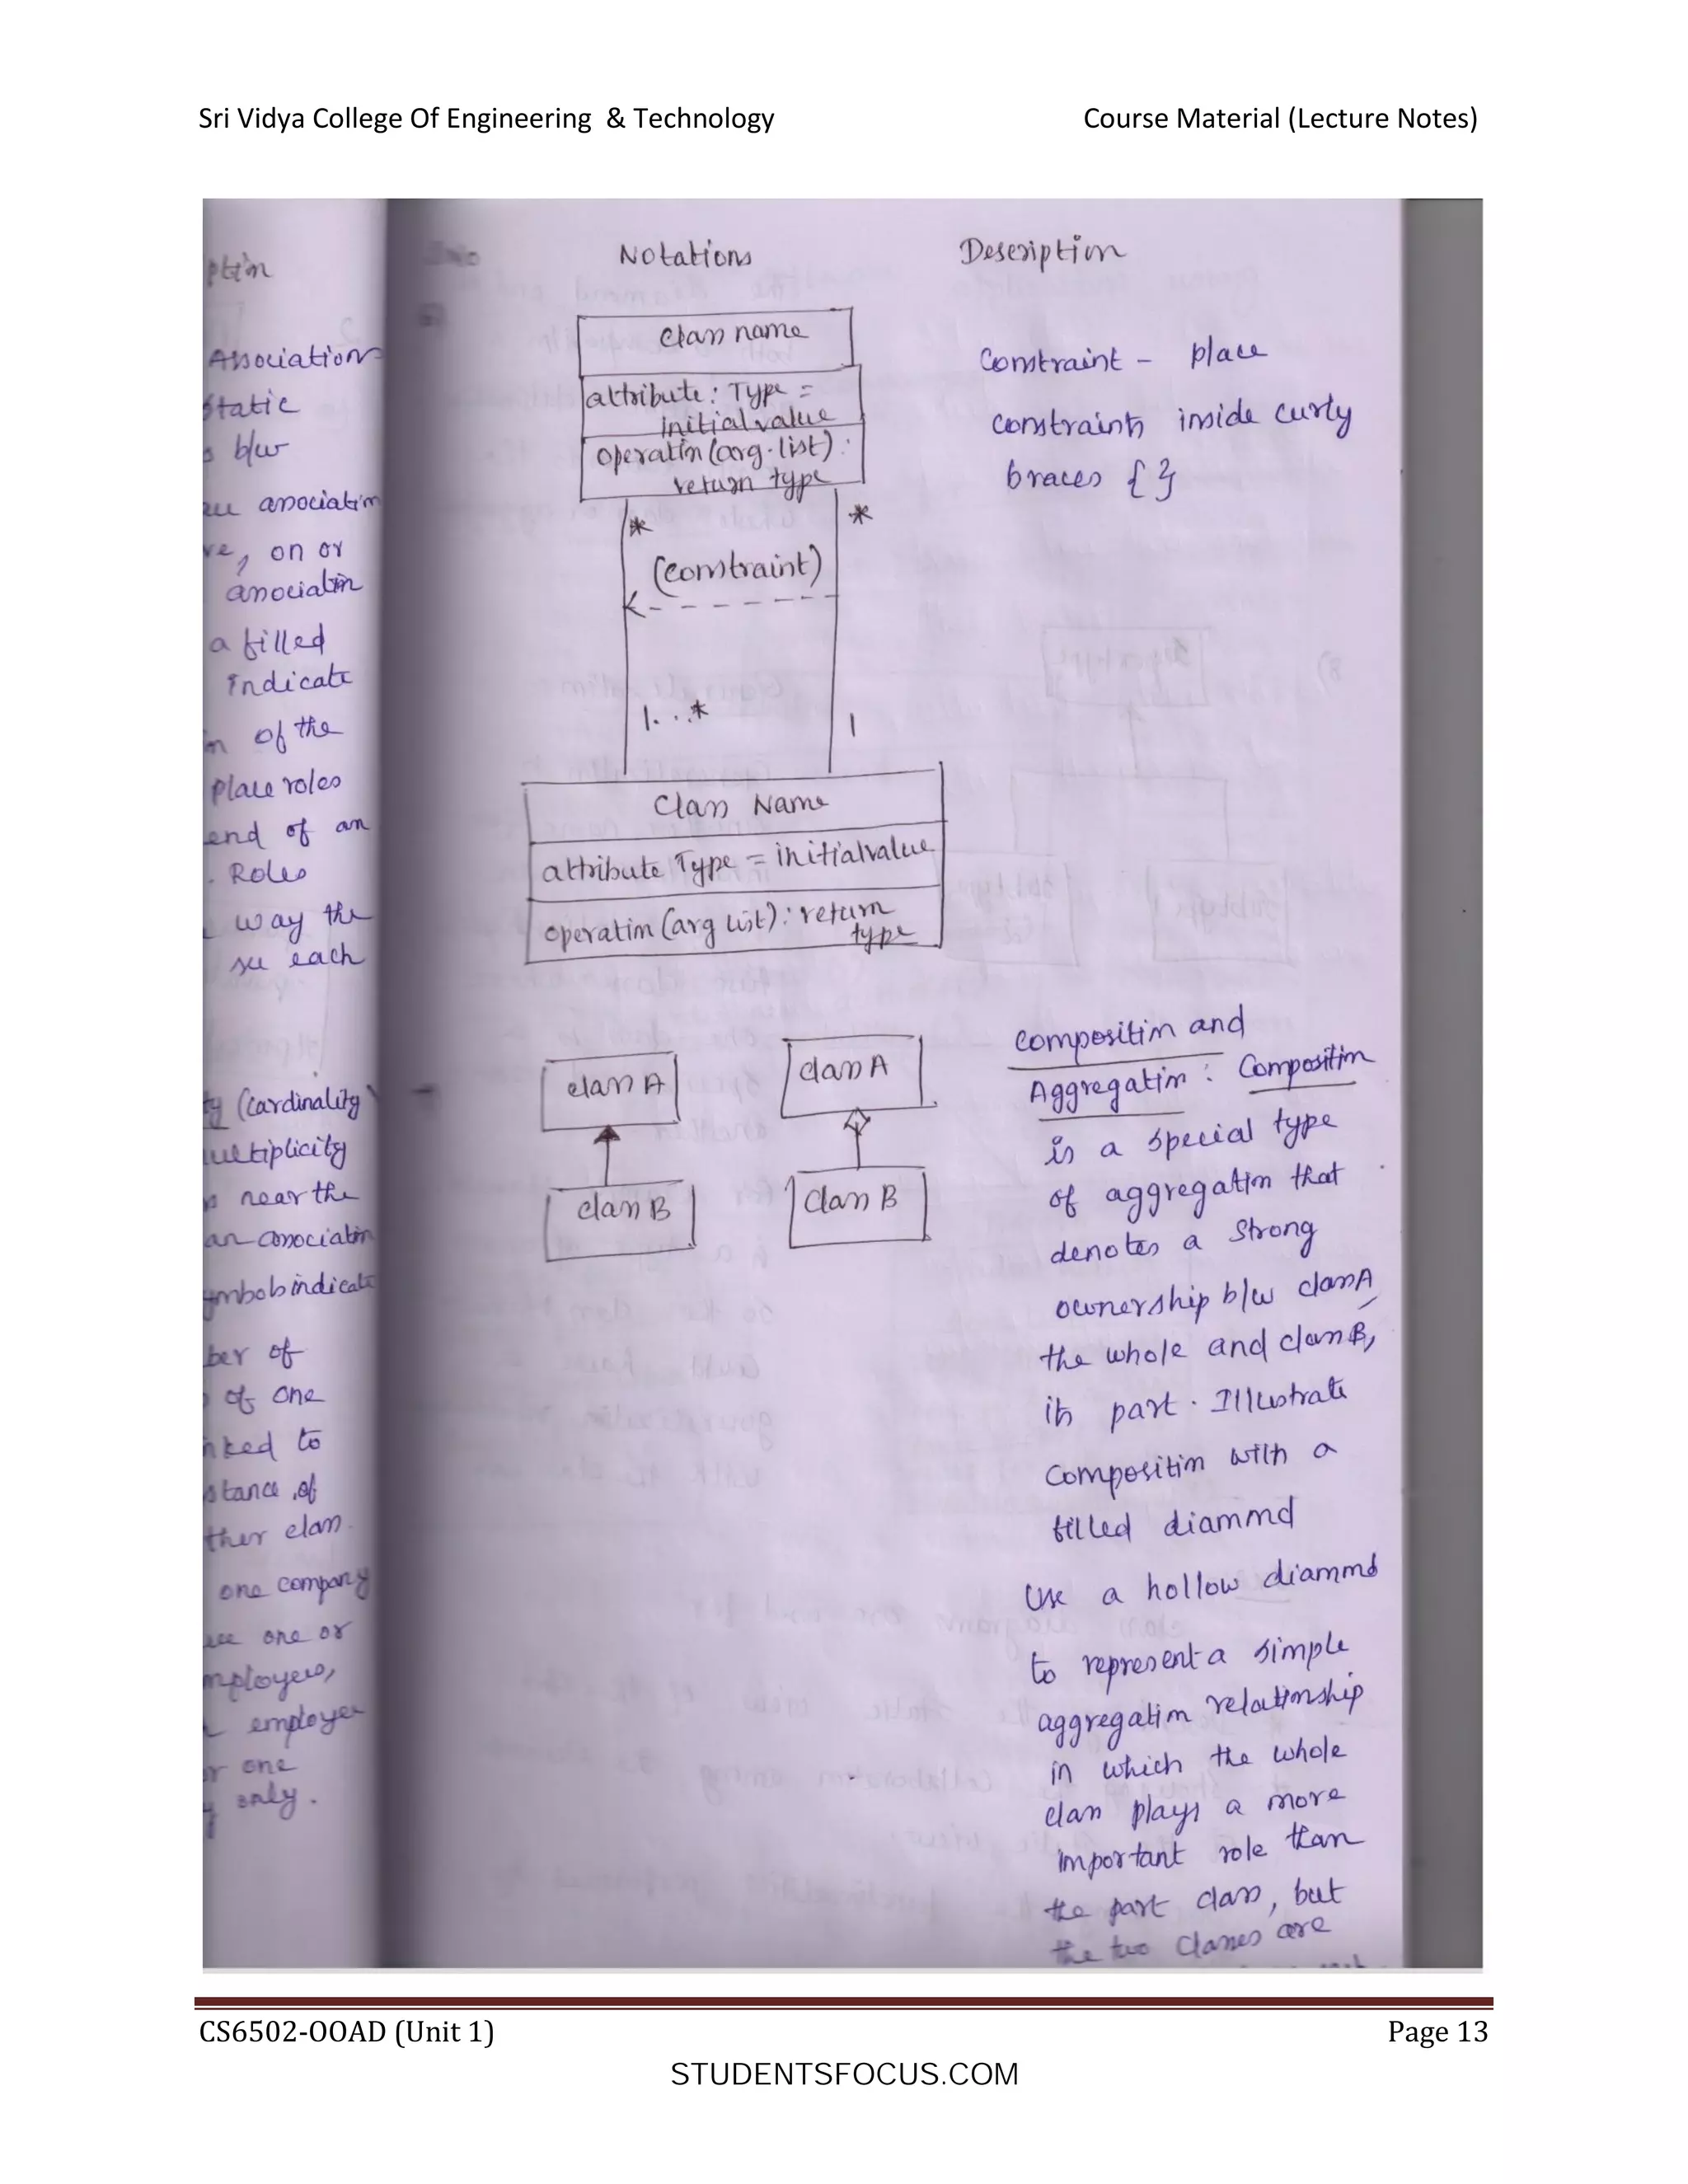 Sri Vidya College Of Engineering & Technology Course Material (Lecture Notes)
Association
static
b/w
association
, on or
association
a filled
indicate
of the
place roles
end of an
. Roles
way the
see each
(cardinality
near the
an association
indicate
of
of one
to
of
class.
one company
one or
employee
one
only.
Notations Description
Class name
attribute : Type =
initial value
operation (arg. list) :
return type
* *
(constraint)
1...* 1
Class Name
attribute Type = initialvalue
operation (arg list) : return
type
Constraint - place
constraints inside curly
braces { }
class A class A
class B Class B
Composition and
Aggregation : Composition
is a special type
of aggregation that
denotes a strong
ownership b/w class A
the whole and class B,
its part. Illustrate
Composition with a
filled diamond
Use a hollow diamond
to represent a simple
aggregation relationship
in which the whole
class plays a more
important role than
the part class, but
the two classes are
CS6502-OOAD (Unit 1) Page 13
STUDENTSFOCUS.COM